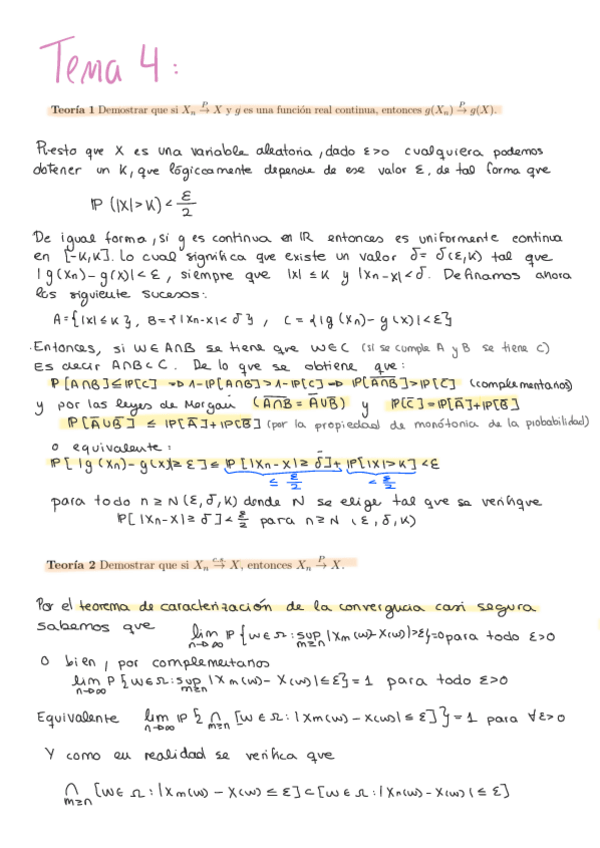 Tema 4:
Teoría 1 Demostrar que si Xn →P X y g es una función real continua, entonces g(Xn) →P g(X).
Puesto que X es una variable aleatoria, dado ε>0 cualquiera podemos
obtener un K, que lógicamente depende de ese valor ε, de tal forma que
P (|X|>K) < ε/2
De igual forma, si g es continua en IR entonces es uniformemente continua
en [-K,K]. Lo cual significa que existe un valor δ = δ(ε,K) tal que
|g(Xn)-g(x)|<ε, siempre que |x| ≤ K y |Xn-x|<δ. Definamos ahora
los siguiente sucesos:
A={|x|≤K}, B={|Xn-x|<δ}, C={|g(Xn)-g(x)|<ε}
Entonces, si w∈A∩B se tiene que w∈C (si se cumple A y B se tiene C)
Es decir A∩B⊂C. De lo que se obtiene que:
P[A∩B]≤P[C] ⇒ 1-P[A∩B]>1-P[C] ⇒ P[A̅∩̅B̅]>P[C̅] (complementarios)
y por las leyes de Morgan (A̅∩̅B̅ = A̅∪B̅) y P[C̅]=P[A̅]+P[B̅]
P[A̅∪B̅] ≤ P[A̅]+P[B̅] (por la propiedad de monótonia de la probabilidad)
o equivalente:
P[|g(Xn)-g(x)|≥ε] ≤ P[|Xn-x|≥δ]+P[|x|>K]<ε
≤ ε/2 < ε/2
para todo n≥N(ε,δ,K) donde N se elige tal que se verifique
P[|Xn-x|≥δ]<ε/2 para n≥N (ε,δ,K)
Teoría 2 Demostrar que si Xn →c.s. X, entonces Xn →P X.
Por el teorema de caracterización de la convergencia casi segura
sabemos que lim n→∞ P{w∈Ω: sup m≥n |Xm(w)-X(w)|>ε}=0 para todo ε>0
O bien, por complementarios
lim n→∞ P{w∈Ω: sup m≥n |Xm(w)-X(w)|≤ε}=1 para todo ε>0
Equivalente lim n→∞ P{∩ m≥n [w∈Ω:|Xm(w)-X(w)|≤ε]}=1 para ∀ε>0
Y como en realidad se verifica que
∩ m≥n [w∈Ω:|Xm(w)-X(w)≤ε]⊂[w∈Ω:|Xn(w)-X(w)|≤ε]